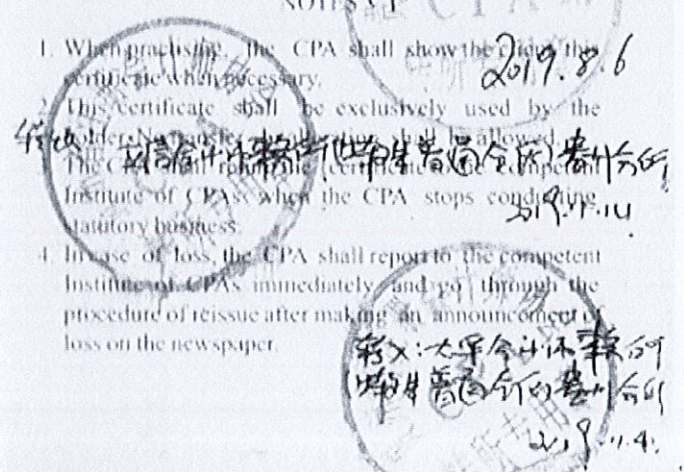 NOTES
1. When practising, the CPA shall show the client this
2019.8.6
certificate when necessary.
2. This certificate shall be exclusively used by the
holder. No transfer shall be allowed.
会计师事务所(特殊普通合伙)贵州分所
3. The CPA shall return the certificate to the competent
Institute of CPAs when the CPA stops conducting
statutory business.
4. In case of loss, the CPA shall report to the competent
Institute of CPAs immediately and go through the
procedure of reissue after making an announcement of
loss on the newspaper.
转入:大华会计师事务所
(特殊普通合伙)贵州分所
2019.11.4.